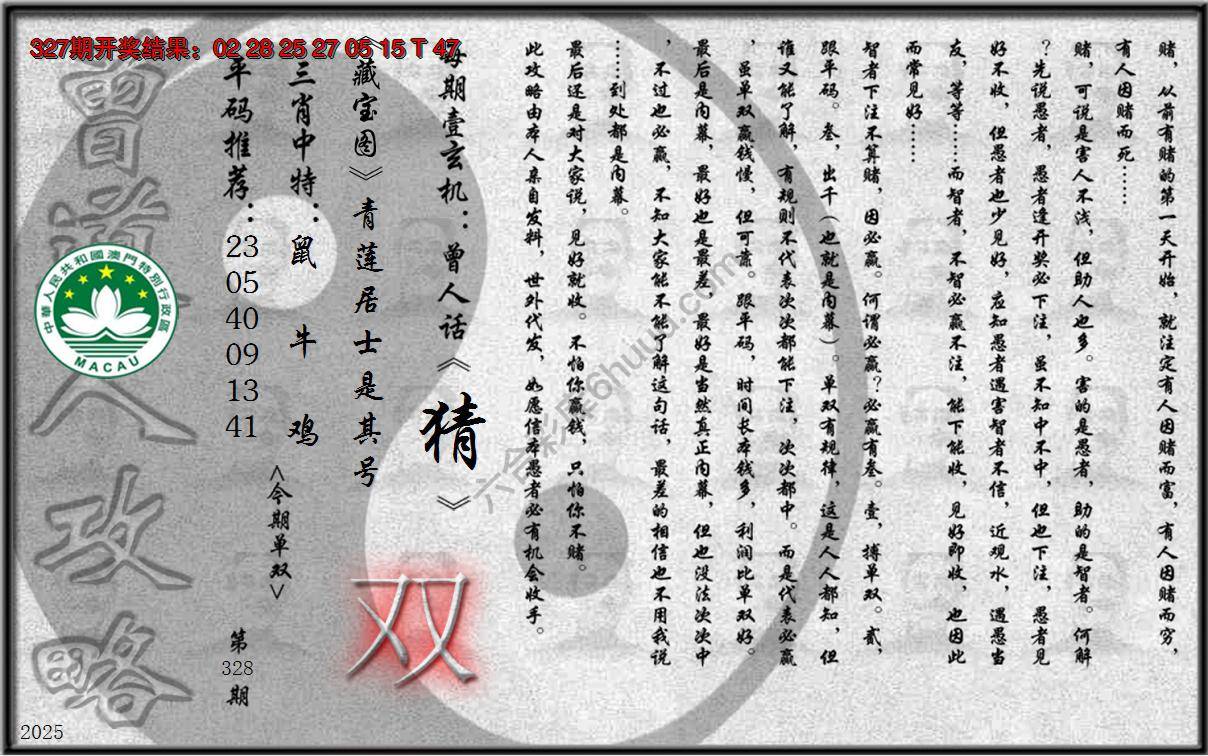 327期开奖结果：02 28 25 27 05 15 T 47
赌，从前有赌的第一天开始，就注定有人因赌而富，有人因赌而穷，
有人因赌而死……
赌，可说是害人不浅，但助人也多。害的是愚者，助的是智者。何解
？先说愚者，愚者逢开奖必下注，虽不知中不中，但也下注，愚者见
好不收，但愚者也少见好，应知愚者遇害智者不信，近观水，遇愚当
友，等等……而智者，不智必赢不注，能下能收，见好即收，也因此
而常见好……
智者下注不算赌，因必赢。何谓必赢？必赢有叁。壹，搏单双。贰，
跟平码。叁，出千（也就是内幕）。单双有规律，这是人人都知，但
谁又能了解，有规则不代表次次都能下注，次次都中。而是代表必赢
，虽单双赢钱慢，但可靠。跟平码，时间长本钱多，利润比单双好。
最后是内幕，最好也是最差，最好是当然真正内幕，但也没法次次中
，不过也必赢，不知大家能不能了解这句话，最差的相信也不用我说
……到处都是内幕。
最后还是对大家说，见好就收。不怕你赢钱，只怕你不赌。
此攻略由本人亲自发料，世外代发，如愿信本愚者必有机会收手。
每期壹玄机：曾人话《猜》
《藏宝图》青莲居士是其号
双
三肖中特：鼠 牛 鸡
<今期单双>
平码推荐：23 05 40 09 13 41
第328期
曾道人攻略
中華人民共和國澳門特別行政區
MACAU
六合彩库6huuu.com
2025